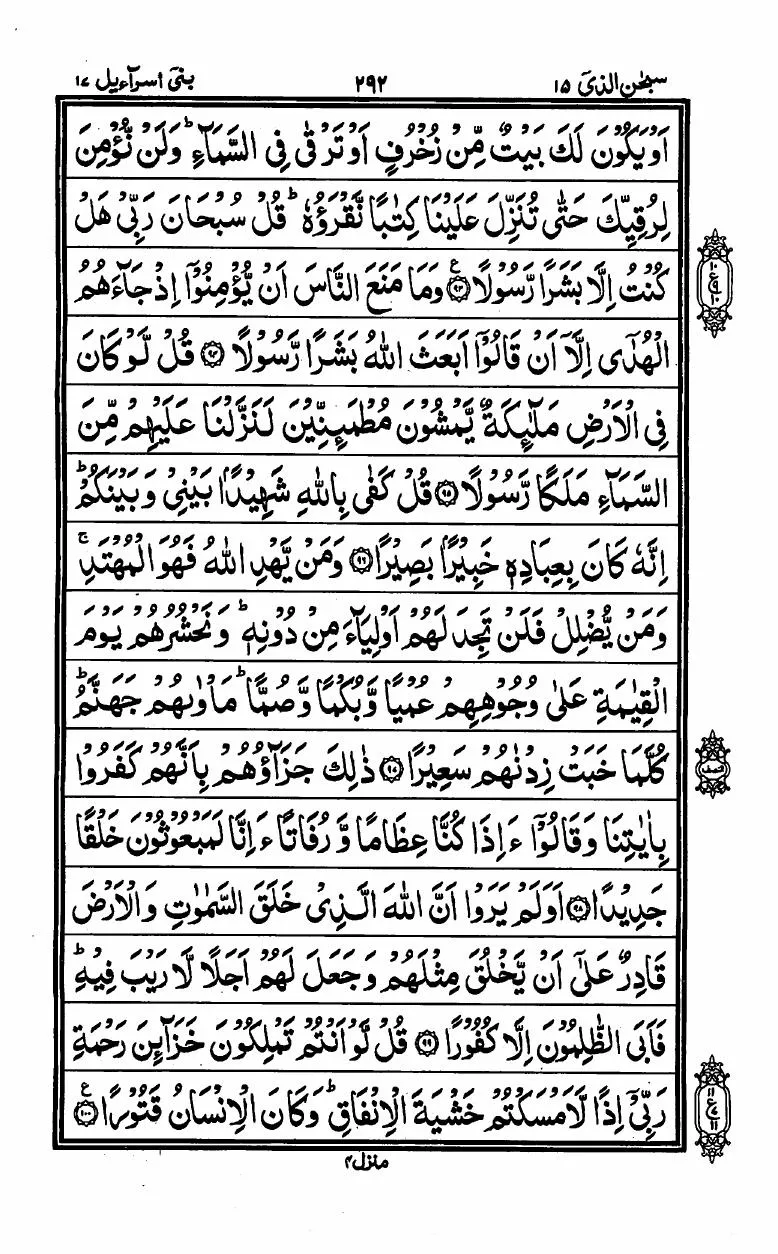 سبحٰن الذیۤ ۱۵
۲۹۲
بنیۤ اسرآءیل ۱۷
اَوْ يَكُوْنَ لَكَ بَيْتٌ مِّنْ زُخْرُفٍ اَوْ تَرْقٰى فِى السَّمَآءِ ؕ وَلَنْ نُّؤْمِنَ
لِرُقِيِّكَ حَتّٰى تُنَزِّلَ عَلَيْنَا كِتٰبًا نَّقْرَؤُهٗ ؕ قُلْ سُبْحَانَ رَبِّىْ هَلْ
كُنْتُ اِلَّا بَشَرًا رَّسُوْلًا ﴿۹۳﴾ ع وَمَا مَنَعَ النَّاسَ اَنْ يُّؤْمِنُوْۤا اِذْ جَآءَهُمُ
الْهُدٰٓى اِلَّاۤ اَنْ قَالُوْۤا اَبَعَثَ اللّٰهُ بَشَرًا رَّسُوْلًا ﴿۹۴﴾ قُلْ لَّوْ كَانَ
فِى الْاَرْضِ مَلٰٓئِكَةٌ يَّمْشُوْنَ مُطْمَئِنِّيْنَ لَنَزَّلْنَا عَلَيْهِمْ مِّنَ
السَّمَآءِ مَلَكًا رَّسُوْلًا ﴿۹۵﴾ قُلْ كَفٰى بِاللّٰهِ شَهِيْدًۢا بَيْنِىْ وَبَيْنَكُمْ ؕ
اِنَّهٗ كَانَ بِعِبَادِهٖ خَبِيْرًۢا بَصِيْرًا ﴿۹۶﴾ وَمَنْ يَّهْدِ اللّٰهُ فَهُوَ الْمُهْتَدِ ۚ
وَمَنْ يُّضْلِلْ فَلَنْ تَجِدَ لَهُمْ اَوْلِيَآءَ مِنْ دُوْنِهٖ ؕ وَنَحْشُرُهُمْ يَوْمَ
الْقِيٰمَةِ عَلٰى وُجُوْهِهِمْ عُمْيًا وَّبُكْمًا وَّصُمًّا ؕ مَاْوٰىهُمْ جَهَنَّمُ ؕ
كُلَّمَا خَبَتْ زِدْنٰهُمْ سَعِيْرًا ﴿۹۷﴾ ذٰلِكَ جَزَآؤُهُمْ بِاَنَّهُمْ كَفَرُوْا
بِاٰيٰتِنَا وَقَالُوْۤا ءَاِذَا كُنَّا عِظَامًا وَّرُفَاتًا ءَاِنَّا لَمَبْعُوْثُوْنَ خَلْقًا
جَدِيْدًا ﴿۹۸﴾ اَوَلَمْ يَرَوْا اَنَّ اللّٰهَ الَّذِىْ خَلَقَ السَّمٰوٰتِ وَالْاَرْضَ
قَادِرٌ عَلٰٓى اَنْ يَّخْلُقَ مِثْلَهُمْ وَجَعَلَ لَهُمْ اَجَلًا لَّا رَيْبَ فِيْهِ ؕ
فَاَبَى الظّٰلِمُوْنَ اِلَّا كُفُوْرًا ﴿۹۹﴾ قُلْ لَّوْ اَنْتُمْ تَمْلِكُوْنَ خَزَآئِنَ رَحْمَةِ
رَبِّىْۤ اِذًا لَّاَمْسَكْتُمْ خَشْيَةَ الْاِنْفَاقِ ؕ وَكَانَ الْاِنْسَانُ قَتُوْرًا ﴿۱۰۰﴾ ع
منزل ۴